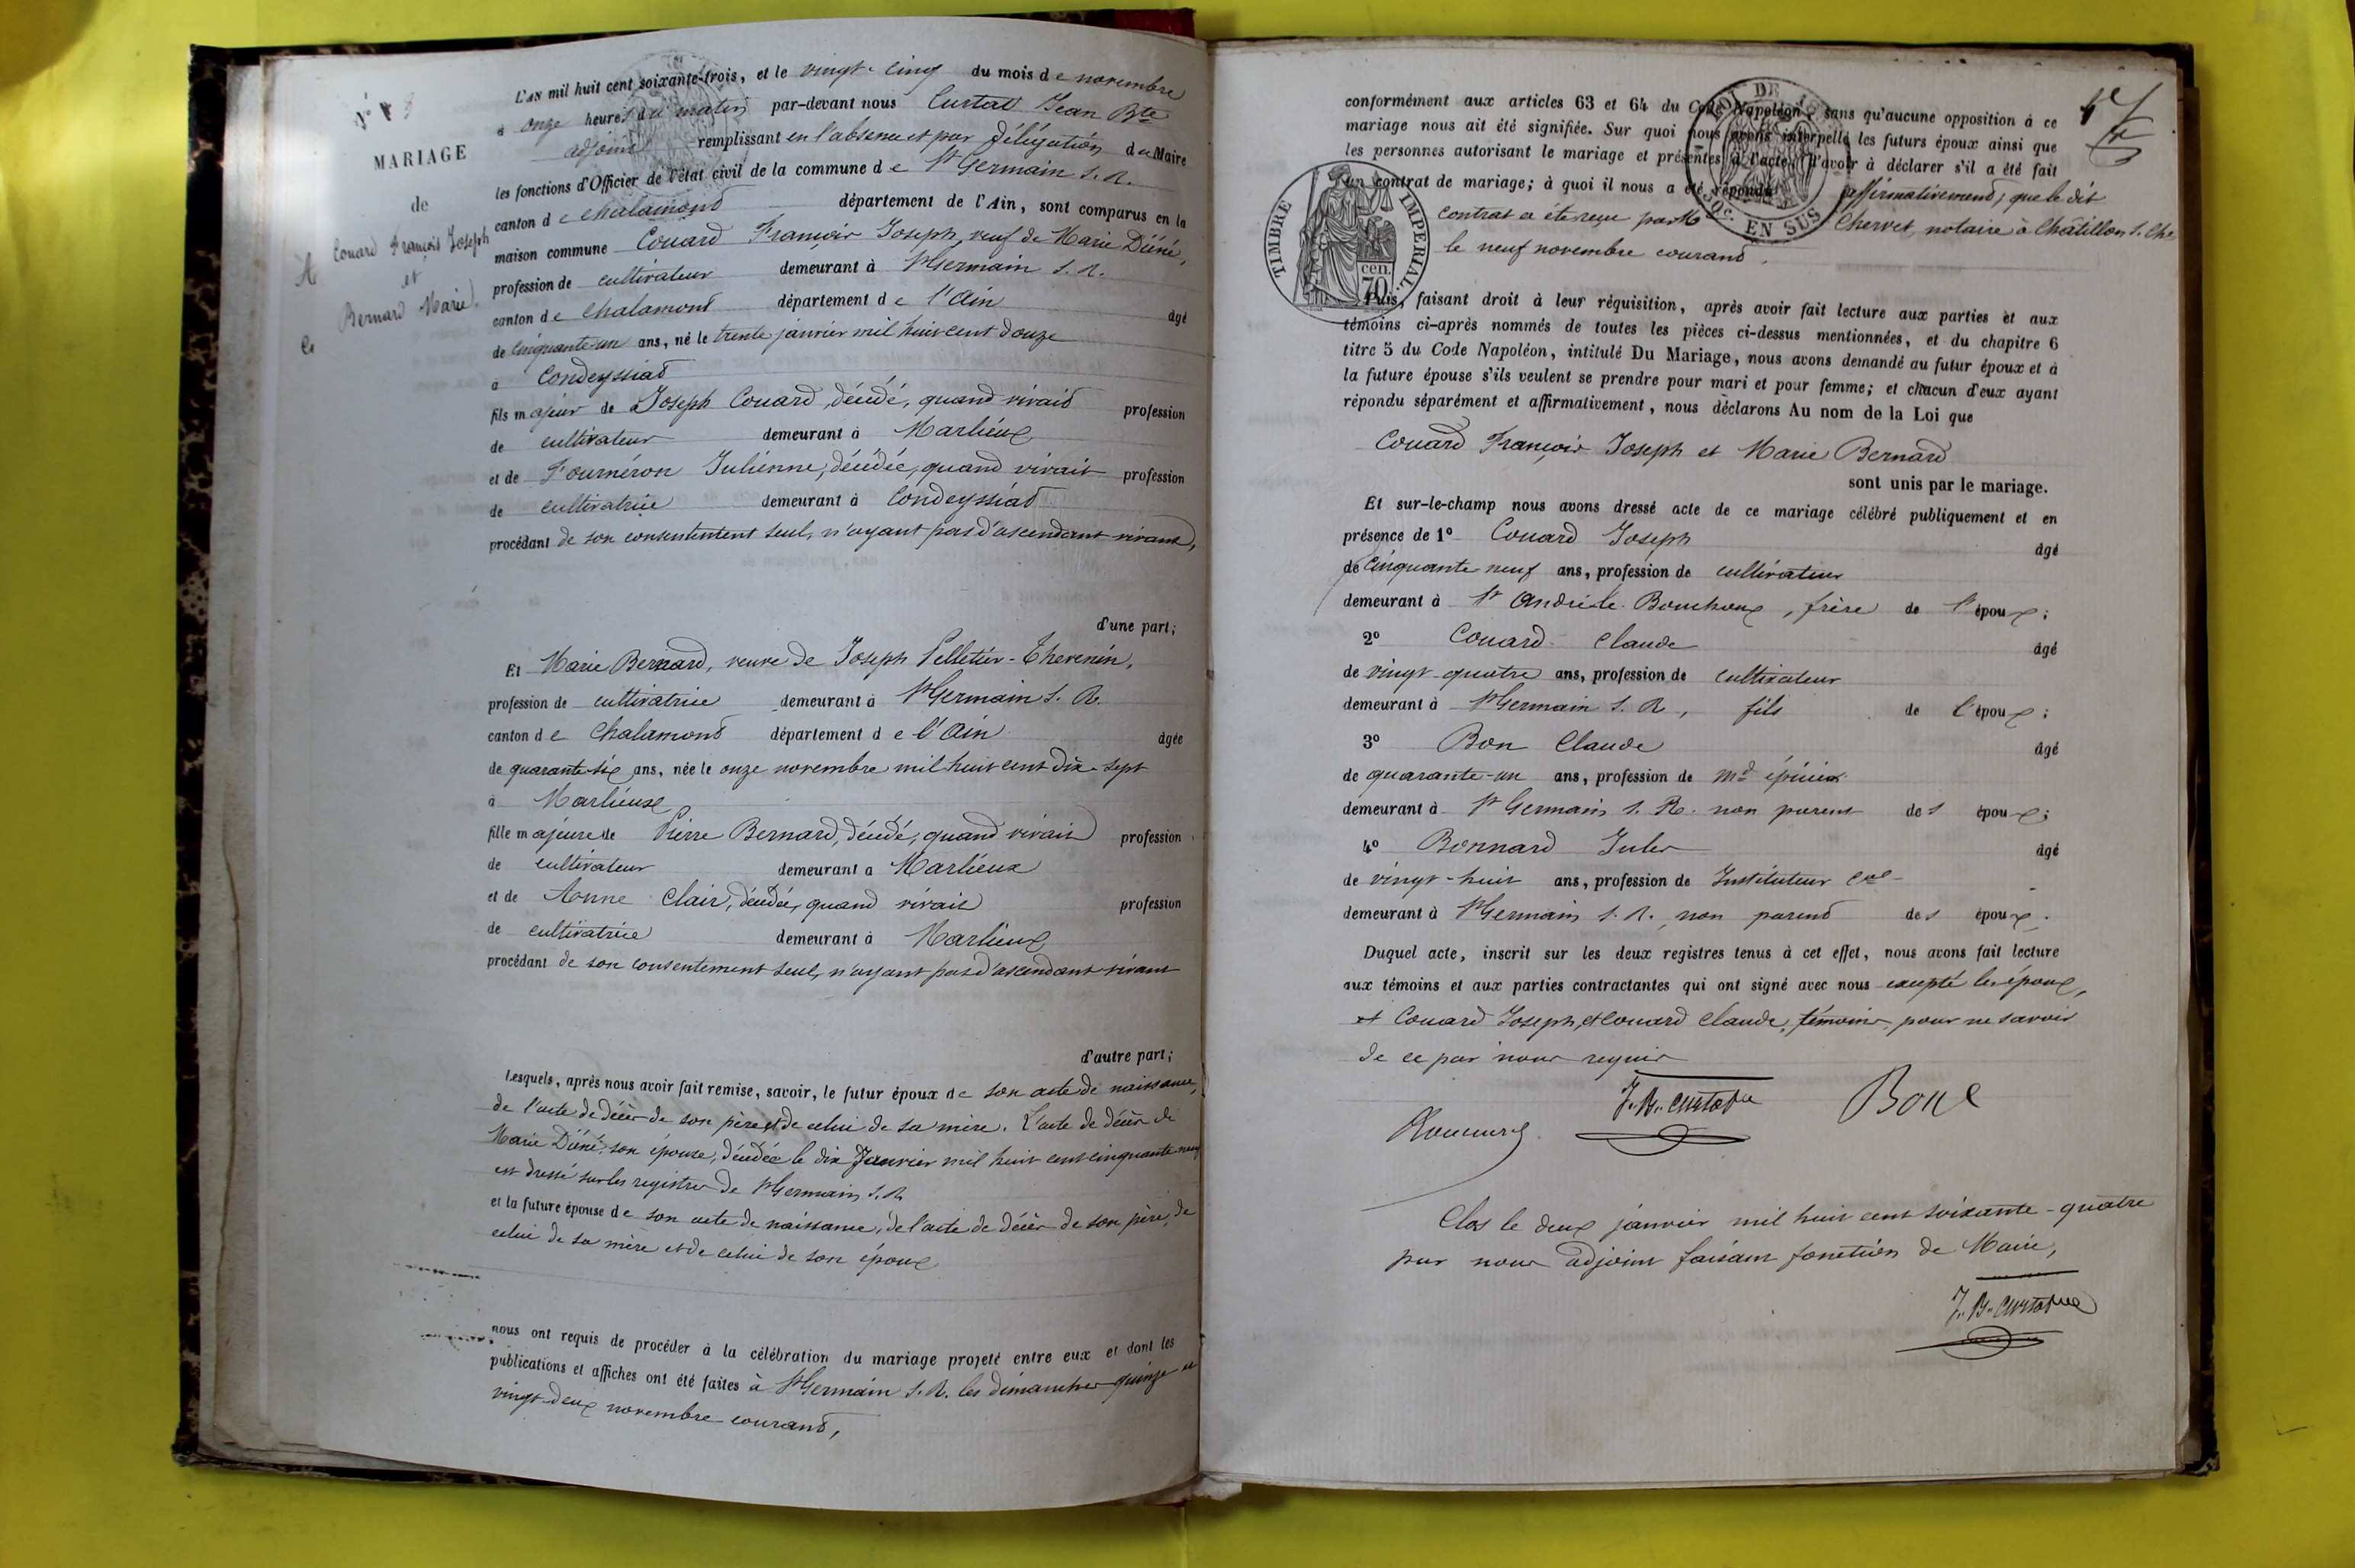 N° 8
MARIAGE
de
Couard François Joseph
et
Bernard Marie
L'AN mil huit cent soixante-trois, et le vingt-cinq du mois de novembre
à onze heures du matin par-devant nous Curtat Jean Bte
adjoint remplissant en l'absence et par délégation du Maire
les fonctions d'Officier de l'état civil de la commune de St Germain S. R.
canton de Chalamont département de l'Ain, sont comparus en la
maison commune Couard François Joseph, veuf de Marie Diéné,
profession de cultivateur demeurant à St Germain S. R.
canton de Chalamont département de l'Ain âgé
de cinquante-un ans, né le trente janvier mil huit cent douze
à Condeyssiat
fils majeur de Joseph Couard, décédé, quand vivait profession
de cultivateur demeurant à Marlieux
et de Fournéron Julienne, décédée, quand vivait profession
de cultivatrice demeurant à Condeyssiat
procédant de son consentement seul, n'ayant pas d'ascendant vivant,
d'une part;
Et Marie Bernard, veuve de Joseph Pelletier-Thevenin,
profession de cultivatrice demeurant à St Germain S. R.
canton de Chalamont département de l'Ain âgée
de quarante-six ans, née le onze novembre mil huit cent dix-sept
à Marlieux
fille majeure de Pierre Bernard, décédé, quand vivait profession
de cultivateur demeurant à Marlieux
et de Anne Clair, décédée, quand vivait profession
de cultivatrice demeurant à Marlieux
procédant de son consentement seul, n'ayant pas d'ascendant vivant
d'autre part;
Lesquels, après nous avoir fait remise, savoir, le futur époux de son acte de naissance,
de l'acte de décès de son père et de celui de sa mère. L'acte de décès de
Marie Diéné, son épouse, décédée le dix Janvier mil huit cent cinquante neuf
est dressé sur les registres de St Germain S. R.
et la future épouse de son acte de naissance, de l'acte de décès de son père, de
celui de sa mère et de celui de son époux
nous ont requis de procéder à la célébration du mariage projeté entre eux et dont les
publications et affiches ont été faites à St Germain S. R. les dimanches quinze et
vingt-deux novembre courant,
conformément aux articles 63 et 64 du Code Napoléon, sans qu'aucune opposition à ce
mariage nous ait été signifiée. Sur quoi nous avons interpellé les futurs époux ainsi que
les personnes autorisant le mariage et présentes à l'acte, d'avoir à déclarer s'il a été fait
un contrat de mariage; à quoi il nous a été répondu affirmativement; que le dit
contrat a été reçu par Me Chervet, notaire à Châtillon S. Chne
le neuf novembre courant.
TIMBRE IMPERIAL
70 cen.
50c. EN SUS
Puis, faisant droit à leur réquisition, après avoir fait lecture aux parties et aux
témoins ci-après nommés de toutes les pièces ci-dessus mentionnées, et du chapitre 6
titre 5 du Code Napoléon, intitulé Du Mariage, nous avons demandé au futur époux et à
la future épouse s'ils veulent se prendre pour mari et pour femme; et chacun d'eux ayant
répondu séparément et affirmativement, nous déclarons Au nom de la Loi que
Couard François Joseph et Marie Bernard
sont unis par le mariage.
Et sur-le-champ nous avons dressé acte de ce mariage célébré publiquement et en
présence de 1° Couard Joseph âgé
de cinquante neuf ans, profession de cultivateur
demeurant à St André-le-Bouchoux, frère de l'époux;
2° Couard Claude âgé
de vingt-quatre ans, profession de cultivateur
demeurant à St Germain S. R., fils de l'époux;
3° Bon Claude âgé
de quarante-un ans, profession de md épicier
demeurant à St Germain S. R. non parent des époux;
4° Bonnard Jules âgé
de vingt-huit ans, profession de Instituteur cal
demeurant à St Germain S. R. non parent des époux.
Duquel acte, inscrit sur les deux registres tenus à cet effet, nous avons fait lecture
aux témoins et aux parties contractantes qui ont signé avec nous excepté les époux,
et Couard Joseph, et Couard Claude, témoins, pour ne savoir
de ce par nous requis
J. B. Curtat Bon
Clos le deux janvier mil huit cent soixante-quatre
par nous adjoint faisant fonction de Maire,
J. B. Curtat